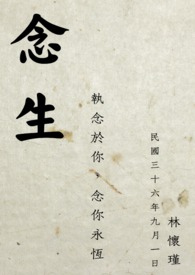 念生
執念於你，念你永恆
民國三十六年九月一日
林懷瑾